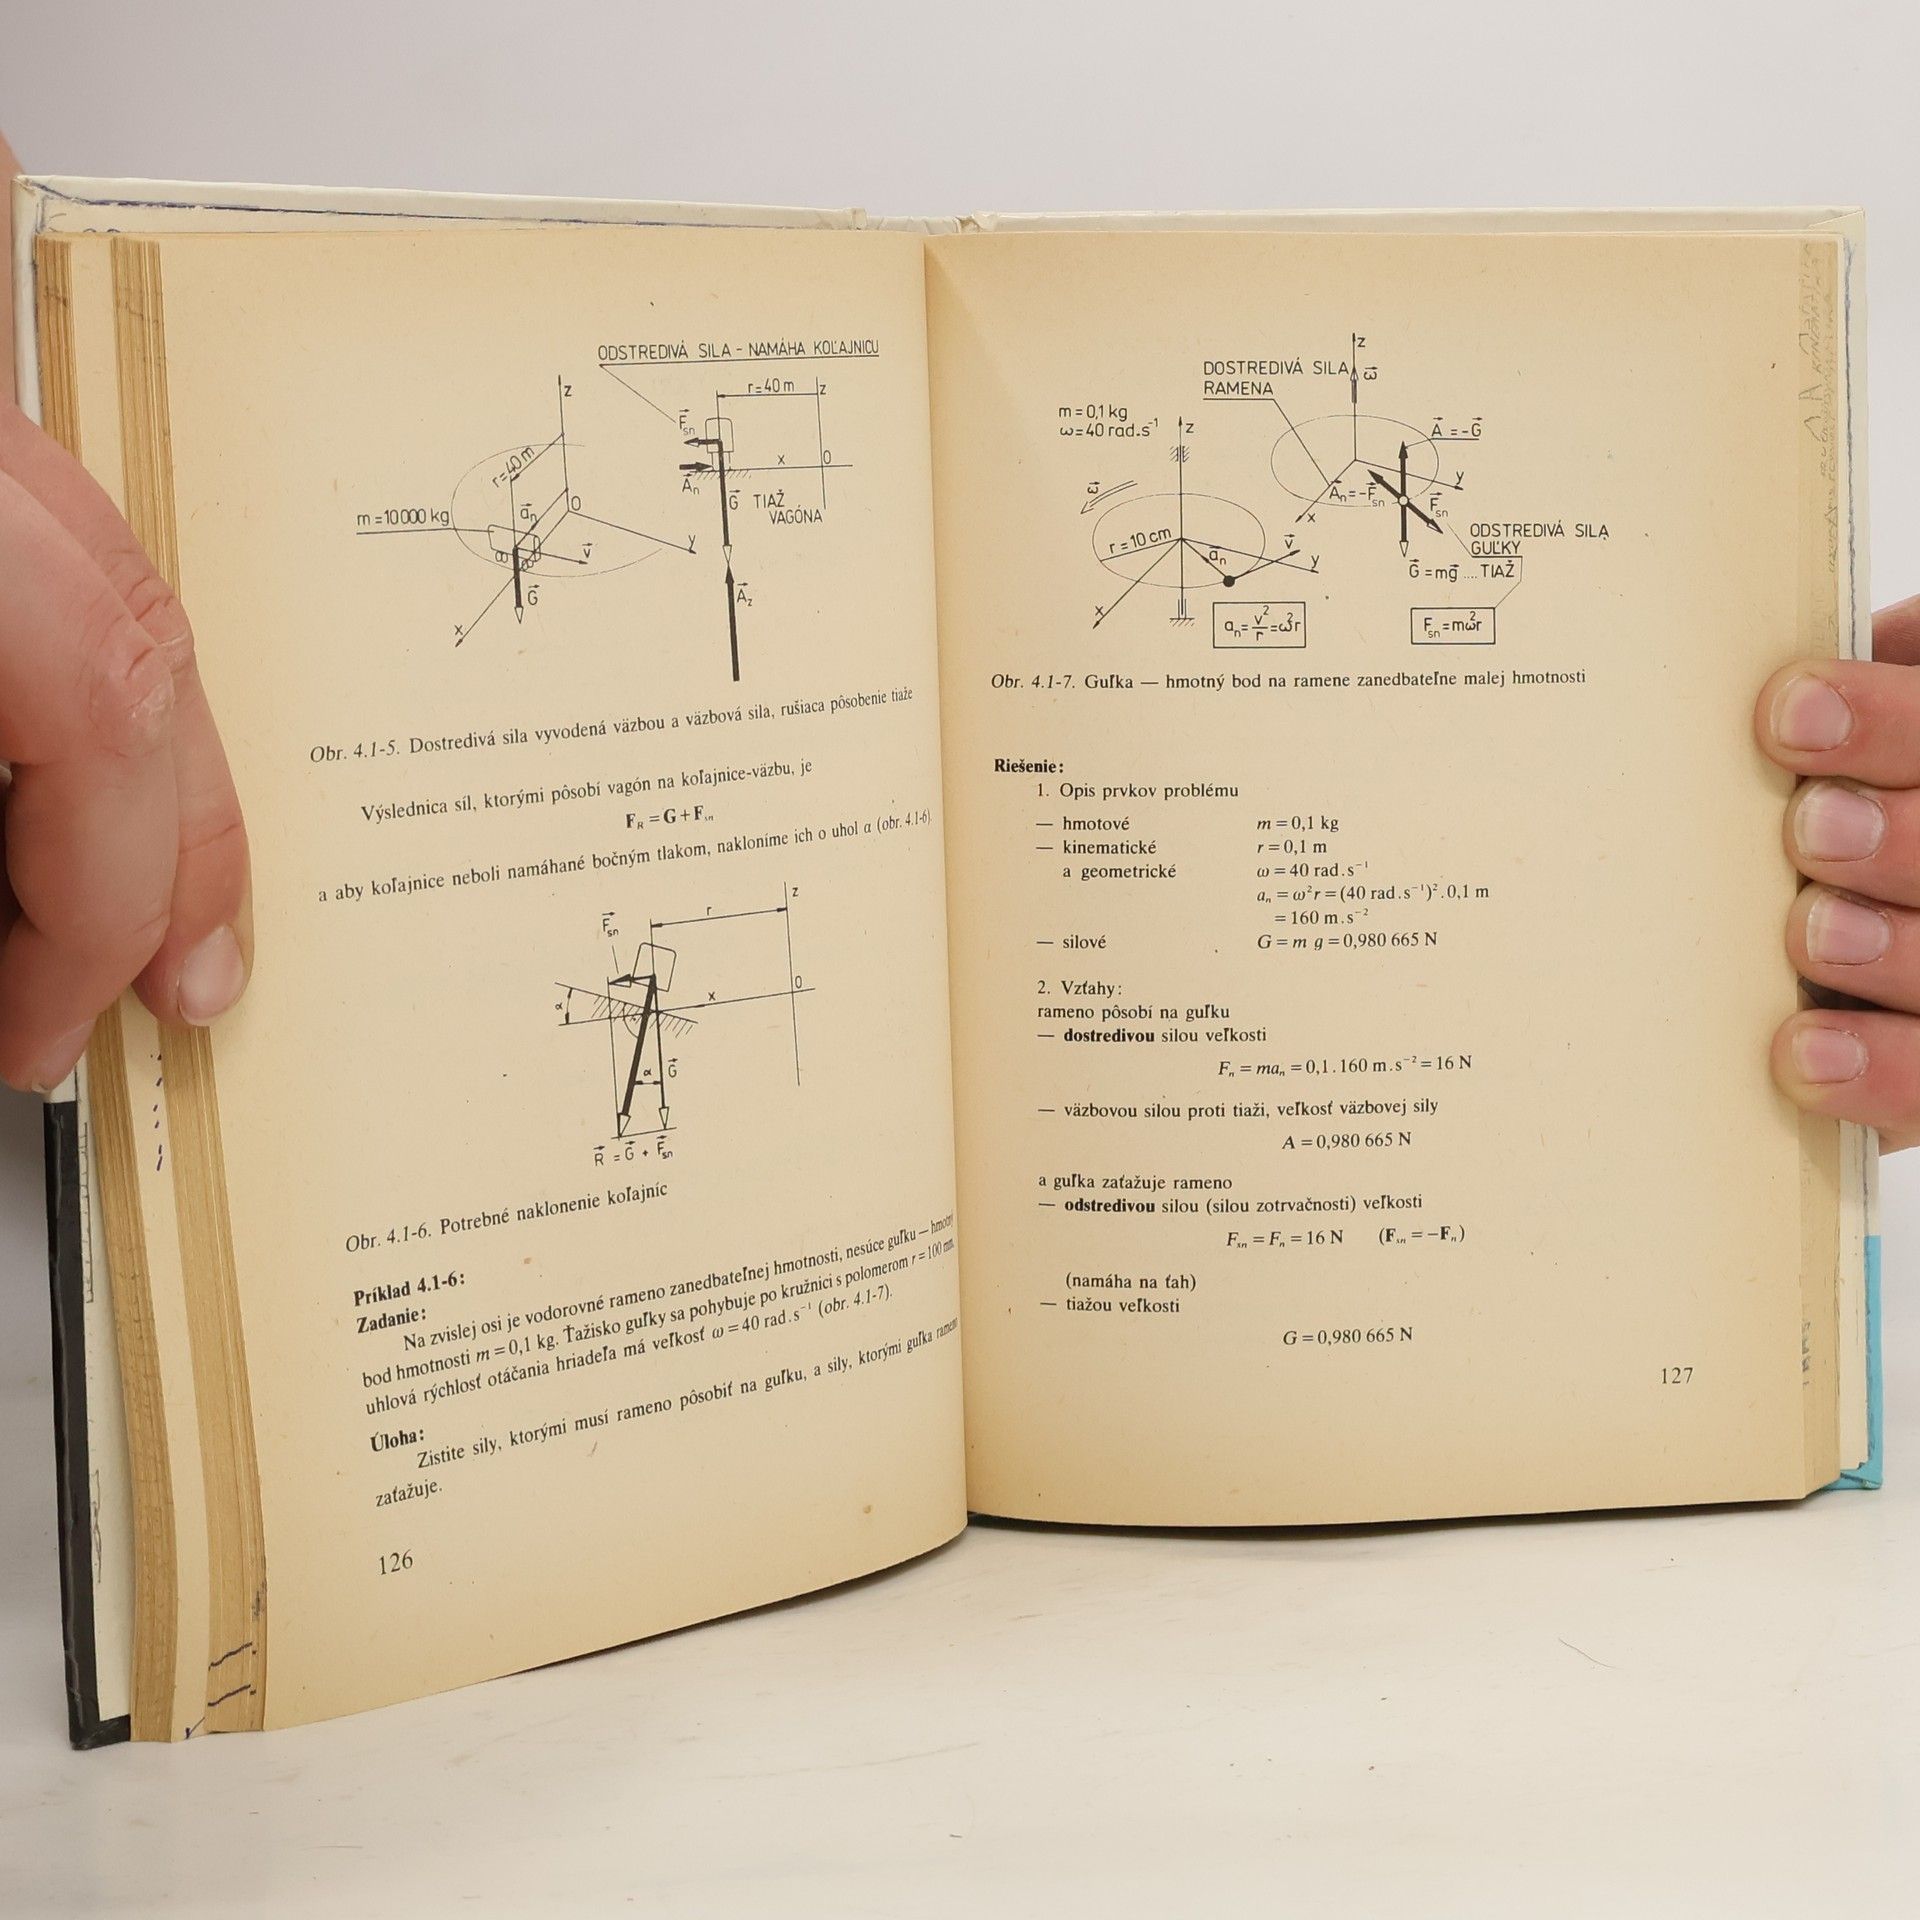 ODSTREDIVÁ SILA - NAMÁHA KOĽAJNICU
r=40 m
z
z
F⃗sn
r=40 m
x
0
A⃗n
G⃗ TIAŽ
VAGÓNA
m=10000 kg
a⃗n
0
v⃗
y
G⃗
A⃗z
x
Obr. 4.1-5. Dostredivá sila vyvodená väzbou a väzbová sila, rušiaca pôsobenie tiaže
Výslednica síl, ktorými pôsobí vagón na koľajnice-väzbu, je
F_R = G + F_sn
a aby koľajnice neboli namáhané bočným tlakom, nakloníme ich o uhol α (obr. 4.1-6).
z
r
F⃗sn
x
0
α
α
G⃗
R⃗ = G⃗ + F⃗sn
Obr. 4.1-6. Potrebné naklonenie koľajníc
Príklad 4.1-6:
Zadanie:
Na zvislej osi je vodorovné rameno zanedbateľnej hmotnosti, nesúce guľku — hmotný
bod hmotnosti m = 0,1 kg. Ťažisko guľky sa pohybuje po kružnici s polomerom r = 100 mm,
uhlová rýchlosť otáčania hriadeľa má veľkosť ω = 40 rad.s⁻¹ (obr. 4.1-7).
Úloha:
Zistite sily, ktorými musí rameno pôsobiť na guľku, a sily, ktorými guľka rameno
zaťažuje.
126
z
DOSTREDIVÁ SILA
RAMENA
ω⃗
m = 0,1 kg
ω = 40 rad.s⁻¹
z
A⃗ = -G⃗
y
ω⃗
A⃗n = -F⃗sn
F⃗sn
x
ODSTREDIVÁ SILA
GUĽKY
r = 10 cm
a⃗n
v⃗
y
G⃗ = mg⃗ .... TIAŽ
x
aₙ = v²/r = ω²r
Fsn = mω²r
Obr. 4.1-7. Guľka — hmotný bod na ramene zanedbateľne malej hmotnosti
Riešenie:
1. Opis prvkov problému
— hmotové m = 0,1 kg
— kinematické r = 0,1 m
a geometrické ω = 40 rad.s⁻¹
aₙ = ω²r = (40 rad.s⁻¹)².0,1 m
= 160 m.s⁻²
— silové G = m g = 0,980 665 N
2. Vzťahy:
rameno pôsobí na guľku
— dostredivou silou veľkosti
Fₙ = maₙ = 0,1.160 m.s⁻² = 16 N
— väzbovou silou proti tiaži, veľkosť väzbovej sily
A = 0,980 665 N
a guľka zaťažuje rameno
— odstredivou silou (silou zotrvačnosti) veľkosti
F_sn = F_n = 16 N (F_sn = −F_n)
(namáha na ťah)
— tiažou veľkosti
G = 0,980 665 N
127